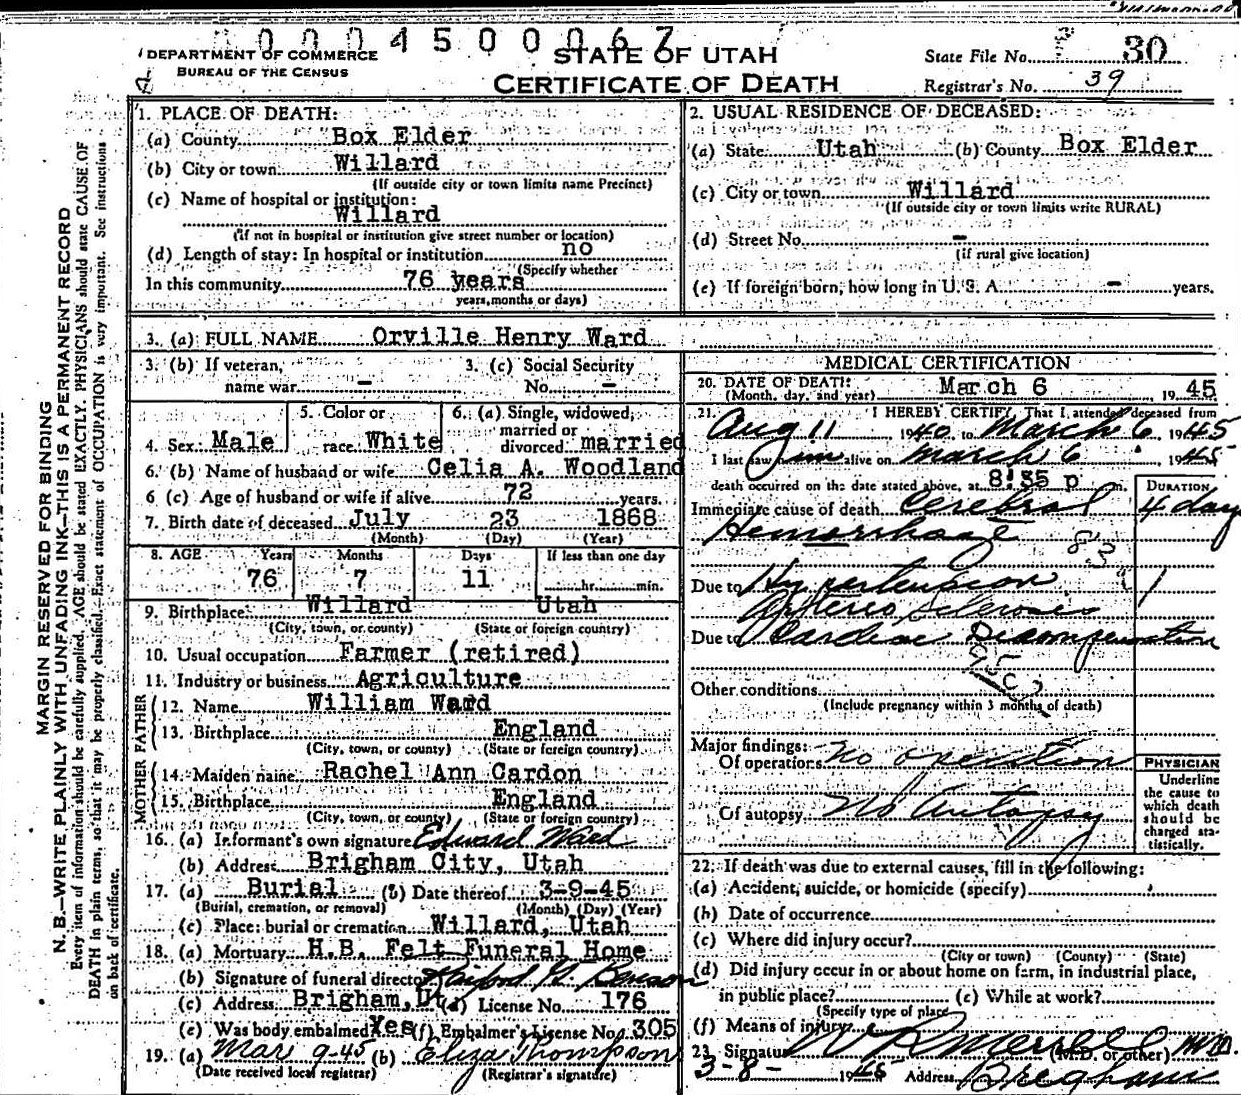 0004500067
DEPARTMENT OF COMMERCE
BUREAU OF THE CENSUS
STATE OF UTAH
CERTIFICATE OF DEATH
State File No. 30
Registrar's No. 39
MARGIN RESERVED FOR BINDING
N. B.—WRITE PLAINLY WITH UNFADING INK—THIS IS A PERMANENT RECORD
Every item of information should be carefully supplied. AGE should be stated EXACTLY. PHYSICIANS should state CAUSE OF
DEATH in plain terms, so that it may be properly classified. Exact statement of OCCUPATION is very important. See instructions
on back of certificate.
1. PLACE OF DEATH:
(a) County Box Elder
(b) City or town Willard
(If outside city or town limits name Precinct)
(c) Name of hospital or institution:
Willard
(If not in hospital or institution give street number or location)
(d) Length of stay: In hospital or institution no
(Specify whether
In this community 76 years
years, months or days)
2. USUAL RESIDENCE OF DECEASED:
(a) State Utah (b) County Box Elder
(c) City or town Willard
(If outside city or town limits write RURAL)
(d) Street No. -
(if rural give location)
(e) If foreign born, how long in U. S. A. - years.
3. (a) FULL NAME Orville Henry Ward
3. (b) If veteran, name war -
3. (c) Social Security No. -
4. Sex: Male
5. Color or race White
6. (a) Single, widowed, married or divorced married
6. (b) Name of husband or wife Celia A. Woodland
6 (c) Age of husband or wife if alive 72 years.
7. Birth date of deceased July 23 1868
(Month) (Day) (Year)
8. AGE Years Months Days If less than one day
76 7 11 hr. min.
9. Birthplace Willard Utah
(City, town, or county) (State or foreign country)
10. Usual occupation Farmer (retired)
11. Industry or business Agriculture
FATHER
12. Name William Ward
13. Birthplace England
(City, town, or county) (State or foreign country)
MOTHER
14. Maiden name Rachel Ann Cardon
15. Birthplace England
(City, town, or county) (State or foreign country)
16. (a) Informant's own signature Edward Ward
(b) Address Brigham City, Utah
17. (a) Burial (b) Date thereof 3-9-45
(Burial, cremation, or removal) (Month) (Day) (Year)
(c) Place: burial or cremation Willard, Utah
18. (a) Mortuary H.B. Felt Funeral Home
(b) Signature of funeral director
(c) Address Brigham, Ut (d) License No. 176
(e) Was body embalmed Yes (f) Embalmer's License No. 305
19. (a) Mar 9-45 (b) Eliza Thompson
(Date received local registrar) (Registrar's signature)
MEDICAL CERTIFICATION
20. DATE OF DEATH: March 6 1945
(Month, day, and year)
21. I HEREBY CERTIFY, That I attended deceased from
Aug 11, 1940 to March 6, 1945
I last saw him alive on March 6, 1945
death occurred on the date stated above, at 8:35 p m.
DURATION
Immediate cause of death Cerebral 4 days
Hemorrhage 83
Due to Hypertension
Arterio Sclerosis
Due to Cardiac Decompensation
Other conditions
(Include pregnancy within 3 months of death)
Major findings:
Of operations No operation
Of autopsy No Autopsy
PHYSICIAN
Underline
the cause to
which death
should be
charged sta-
tistically.
22. If death was due to external causes, fill in the following:
(a) Accident, suicide, or homicide (specify)
(b) Date of occurrence
(c) Where did injury occur?
(City or town) (County) (State)
(d) Did injury occur in or about home on farm, in industrial place,
in public place? (e) While at work?
(Specify type of place
(f) Means of injury
23. Signature W R Merrell (M.D. or other) MD.
3-8- 1945 Address Brigham